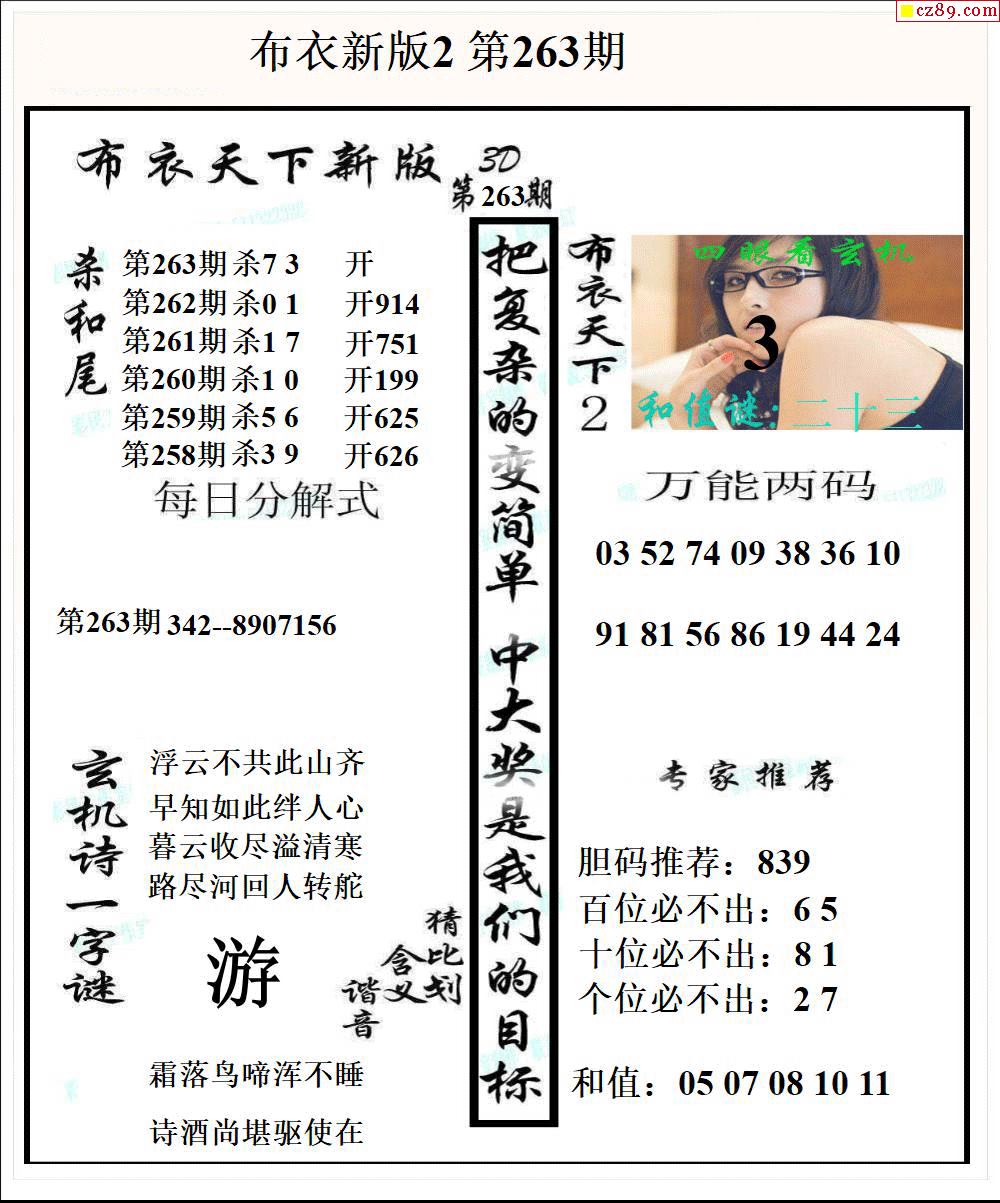 cz89.com
布衣新版2 第263期
布衣天下新版 3D
第263期
杀和尾
第263期 杀7 3 开
第262期 杀0 1 开914
第261期 杀1 7 开751
第260期 杀1 0 开199
第259期 杀5 6 开625
第258期 杀3 9 开626
每日分解式
第263期 342--8907156
玄机诗一字谜
浮云不共此山齐
早知如此绊人心
暮云收尽溢清寒
路尽河回人转舵
游
猜比划
含义
谐音
霜落鸟啼浑不睡
诗酒尚堪驱使在
把复杂的变简单 中大奖是我们的目标
布衣天下2
四眼看玄机
3
和值谜:二十三
万能两码
03 52 74 09 38 36 10
91 81 56 86 19 44 24
专家推荐
胆码推荐：839
百位必不出：6 5
十位必不出：8 1
个位必不出：2 7
和值：05 07 08 10 11